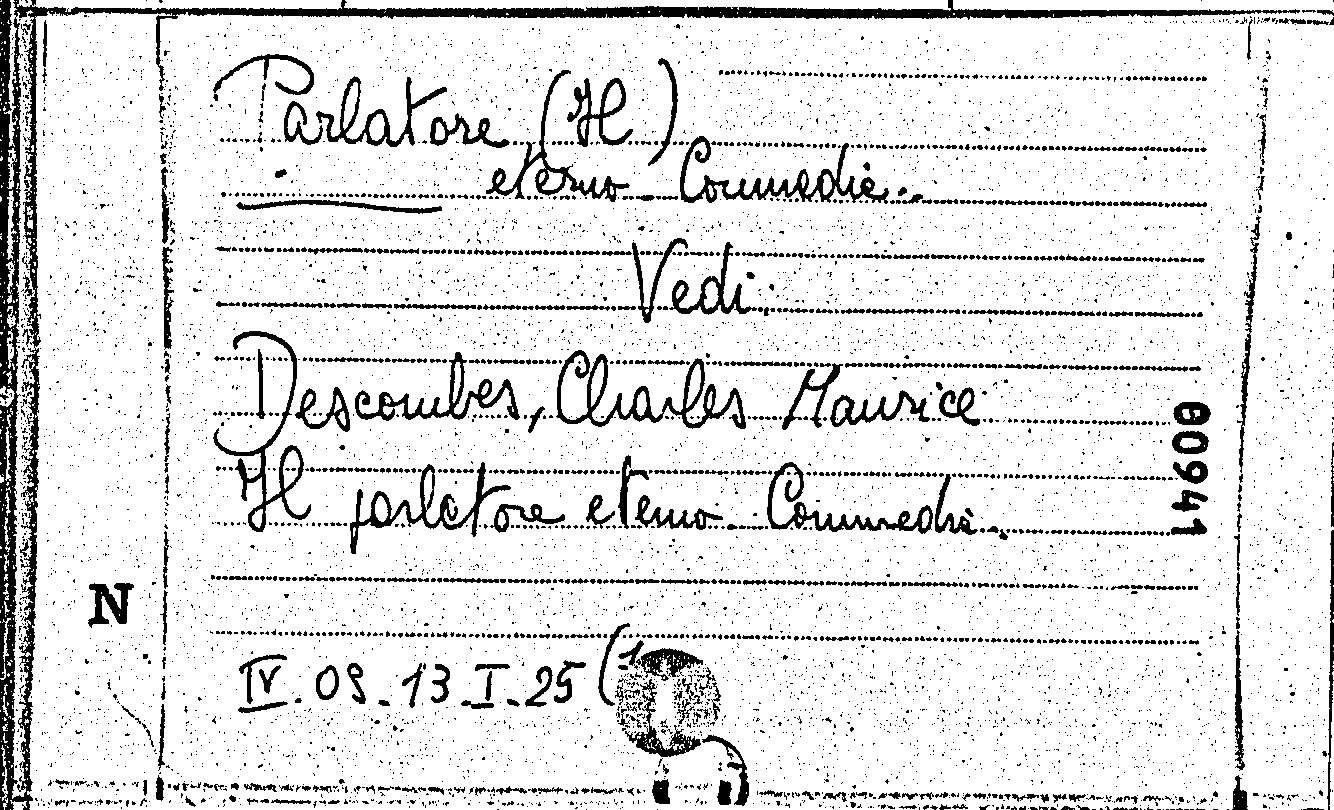 Parlatore (Il)
eterno. Commedia.
Vedi:
Descombes, Charles Maurice
Il parlatore eterno. Commedia.
00941
N
IV. 09. 13. I. 25 (1